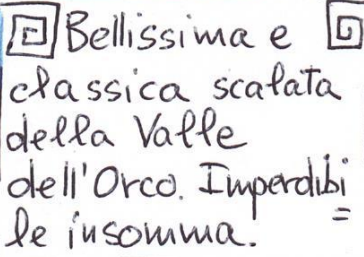 Bellissima e
classica scalata
della Valle
dell'Orco. Imperdibi=
le insomma.